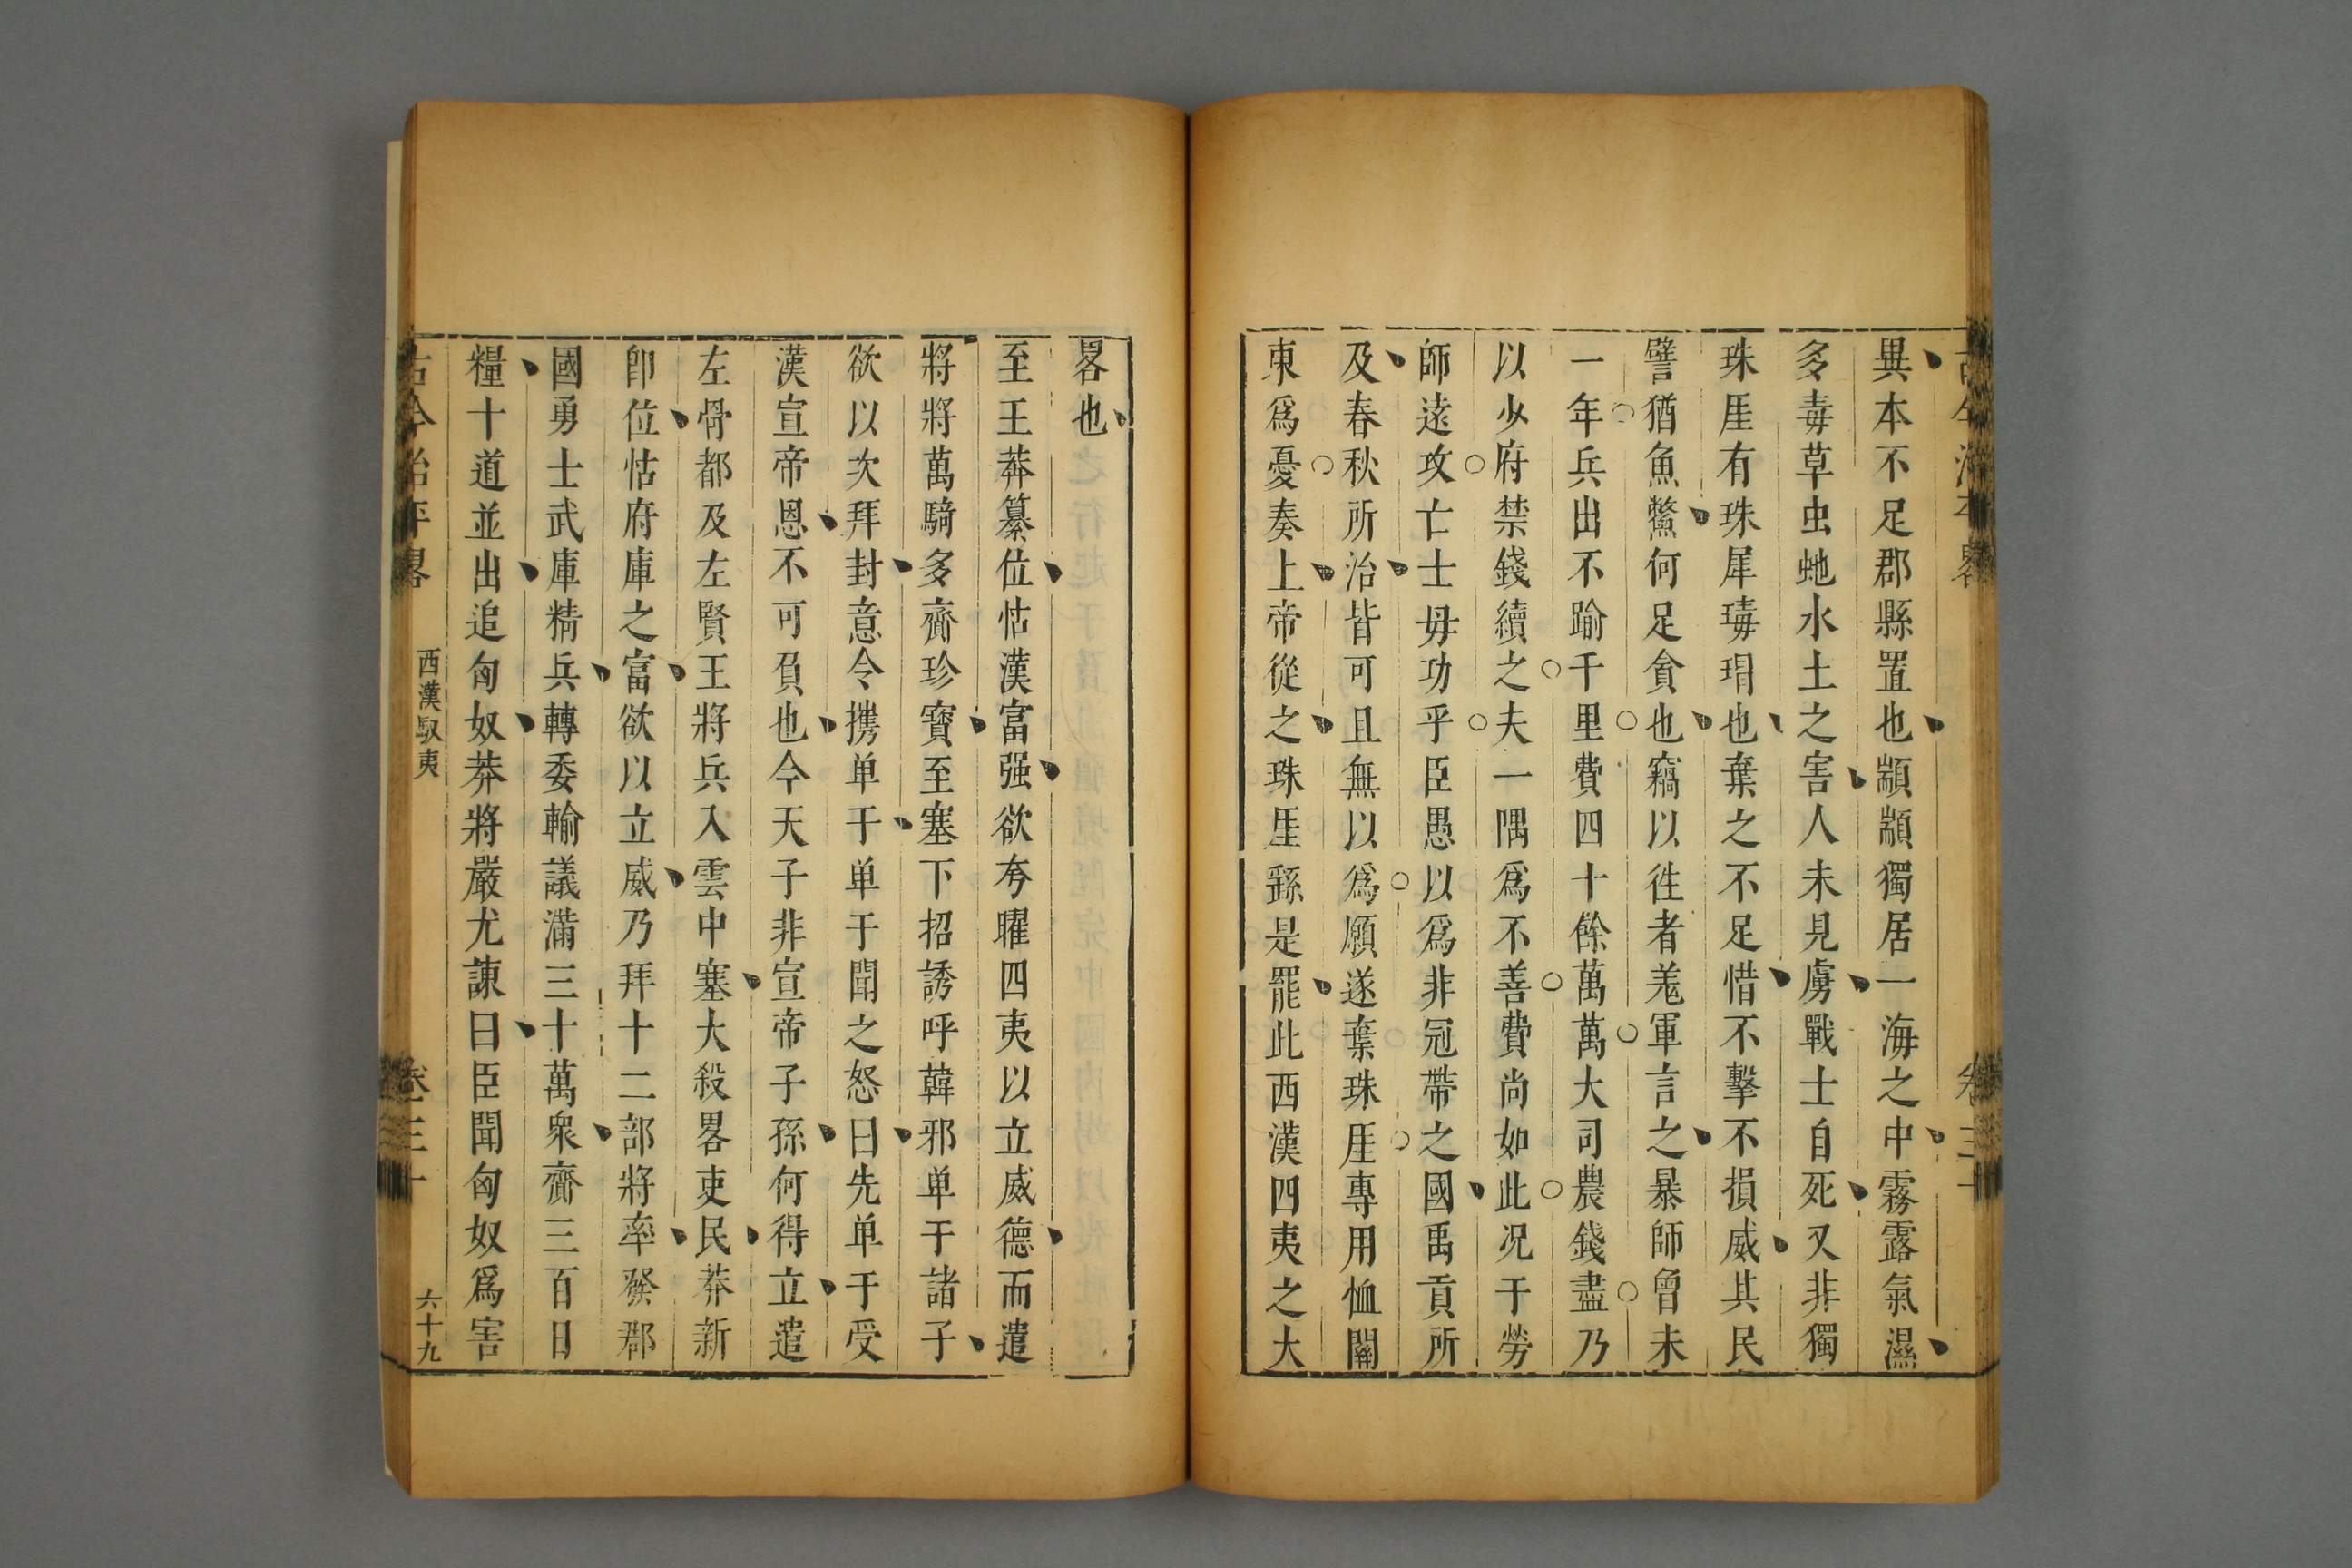 異本不足郡縣置也顓顓獨居一海之中霧露氣濕
多毒草虫虵水土之害人未見虜戰士自死又非獨
珠厓有珠犀瑇瑁也棄之不足惜不擊不損威其民
譬猶魚鱉何足貪也竊以徃者羗軍言之暴師曾未
一年兵出不踰千里費四十餘萬萬大司農錢盡乃
以少府禁錢續之夫一隅爲不善費尚如此况于勞
師遠攻亡士毋功乎臣愚以爲非冠帶之國禹貢所
及春秋所治皆可且無以爲願遂棄珠厓專用恤關
東爲憂奏上帝從之珠厓繇是罷此西漢四夷之大
畧也
至王莽纂位怙漢富强欲夸曜四夷以立威德而遣
將將萬騎多齎珍寶至塞下招誘呼韓邪单于諸子
欲以次拜封意令携单于单于聞之怒曰先单于受
漢宣帝恩不可負也今天子非宣帝子孫何得立遣
左骨都及左賢王將兵入雲中塞大殺畧吏民莽新
卽位怙府庫之富欲以立威乃拜十二部將率發郡
國勇士武庫精兵轉委輸議滿三十萬衆齎三百日
糧十道並出追匈奴莽將嚴尤諫曰臣聞匈奴爲害
古今治平畧 西漢馭夷 卷三十 六十九